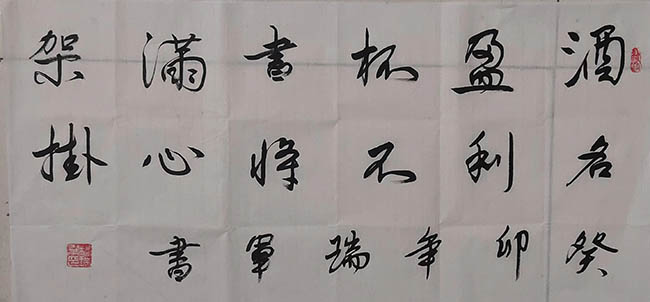 酒盈杯書滿架
名利不將心掛
癸卯年瑞軍書